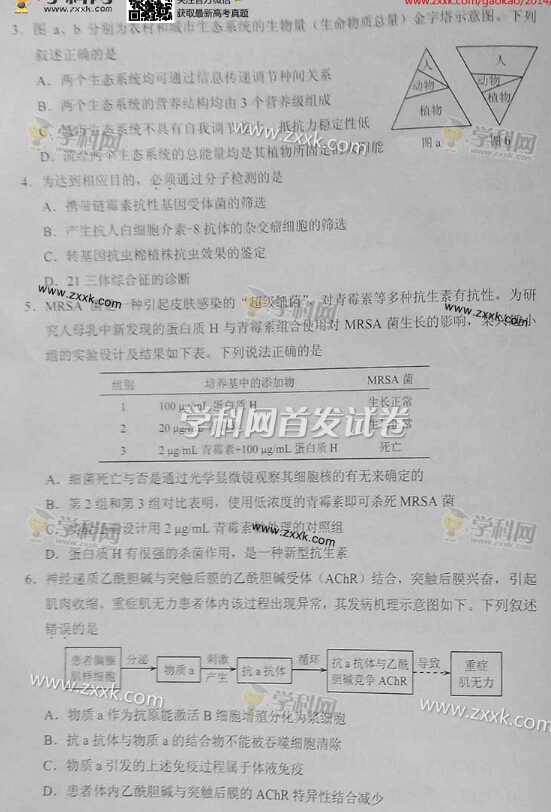 关注官方微信
获取最新高考真题
www.zxxk.com/gaokao/2014/
3. 图 a、b 分别为农村和城市生态系统的生物量（生命物质总量）金字塔示意图。下列
叙述正确的是
A. 两个生态系统均可通过信息传递调节种间关系
B. 两个生态系统的营养结构均由 3 个营养级组成
生态系统不具有自我调节 抵抗力稳定性低
D. 流经两个生态系统的总能量均是其植物所固定的
人
动物
植物
图 a
人
动物
植物
图 b
4. 为达到相应目的，必须通过分子检测的是
A. 携带链霉素抗性基因受体菌的筛选
B. 产生抗人白细胞介素-8 抗体的杂交瘤细胞的筛选
C. 转基因抗虫棉植株抗虫效果的鉴定
D. 21 三体综合征的诊断
5. MRSA 一种引起皮肤感染的“超级细菌”，对青霉素等多种抗生素有抗性。为研
究人母乳中新发现的蛋白质 H 与青霉素组合使用对 MRSA 菌生长的影响，某兴趣小
组的实验设计及结果如下表。下列说法正确的是
组别 培养基中的添加物 MRSA 菌
1 100 μg/mL 蛋白质 H 生长正常
2 20 μg/mL
3 2 μg/mL 青霉素+100 μg/mL 蛋白质 H 死亡
A. 细菌死亡与否是通过光学显微镜观察其细胞核的有无来确定的
B. 第 2 组和第 3 组对比表明，使用低浓度的青霉素即可杀死 MRSA 菌
设计用 2 μg/mL 青霉素 处理的对照组
D. 蛋白质 H 有很强的杀菌作用，是一种新型抗生素
6. 神经递质乙酰胆碱与突触后膜的乙酰胆碱受体（AChR）结合，突触后膜兴奋，引起
肌肉收缩。重症肌无力患者体内该过程出现异常，其发病机理示意图如下。下列叙述
错误的是
患者胸腺
肌样细胞
分泌
物质 a
刺激
产生
抗 a 抗体
循环
抗 a 抗体与乙酰
胆碱竞争 AChR
导致
重症
肌无力
A. 物质 a 作为抗原能激活 B 细胞增殖分化为浆细胞
B. 抗 a 抗体与物质 a 的结合物不能被吞噬细胞清除
C. 物质 a 引发的上述免疫过程属于体液免疫
D. 患者体内乙酰胆碱与突触后膜的 AChR 特异性结合减少
学科网首发试卷
学科网
www.zxxk.com
学科网
zxxk.com
www.zxxk.com
学科网
www.zxxk.com
学科网
www.zxxk.com
学科网
www.zxxk.com
学科网
www.zxxk.com